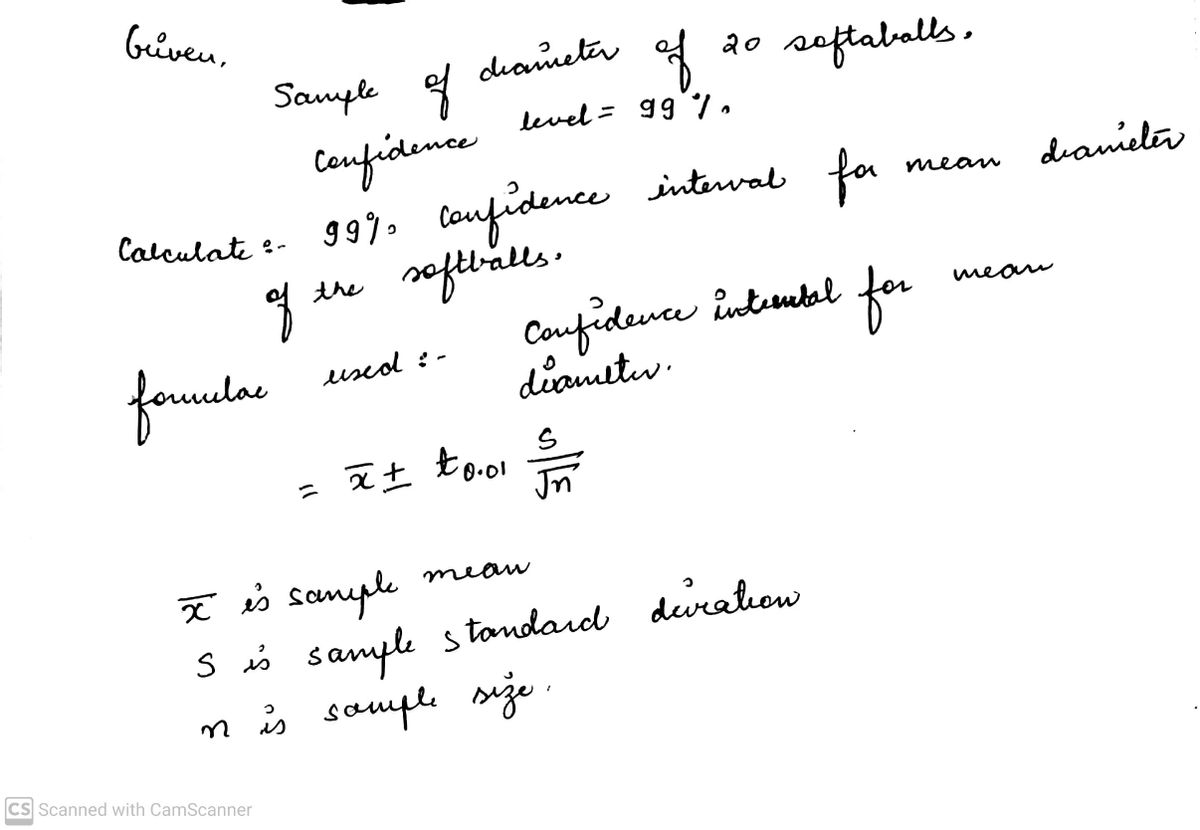 Given,
Sample of diameter of 20 softaballs.
Confidence level = 99%.
Calculate :- 99% confidence interval for mean diameter
of the softballs.
formulae used :- Confidence interval for mean
diameter.
= x̄ ± t0.01 S/√n
x̄ is sample mean
S is sample standard deviation
n is sample size.
CS Scanned with CamScanner